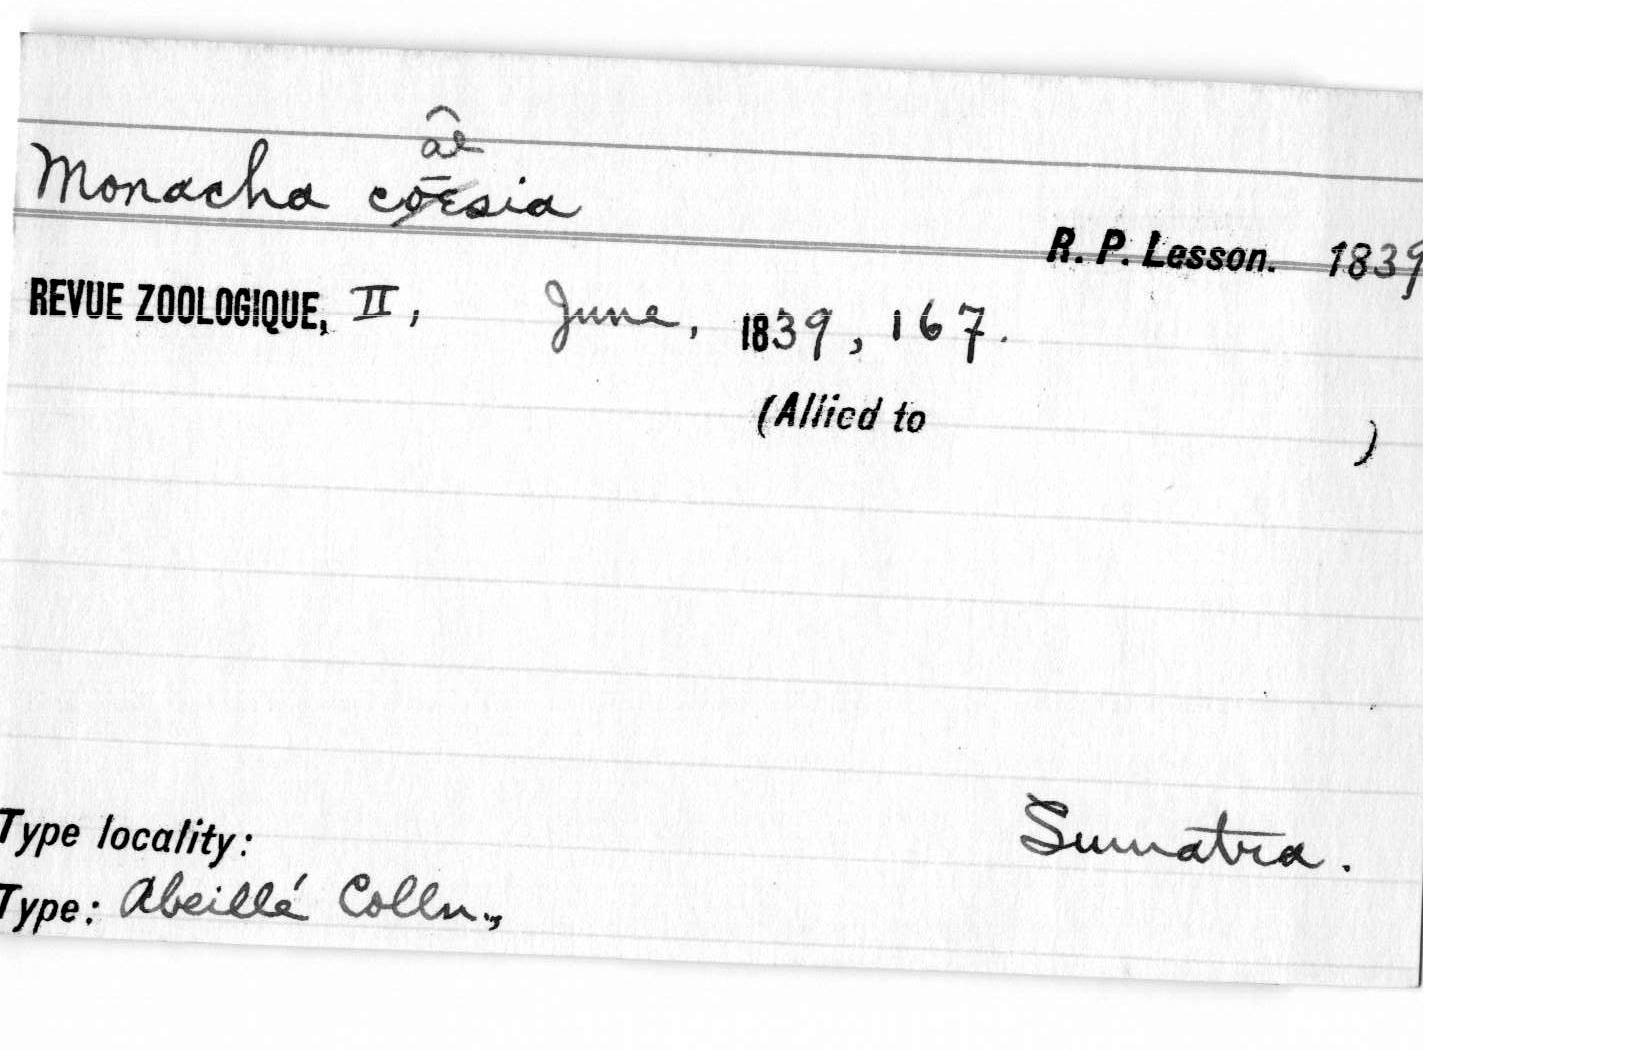 a͡e
Monacha cōēsia
R. P. Lesson. 1839
REVUE ZOOLOGIQUE, II, June, 1839, 167.
(Allied to )
Type locality: Sumatra.
Type: Abeillé Colln.,